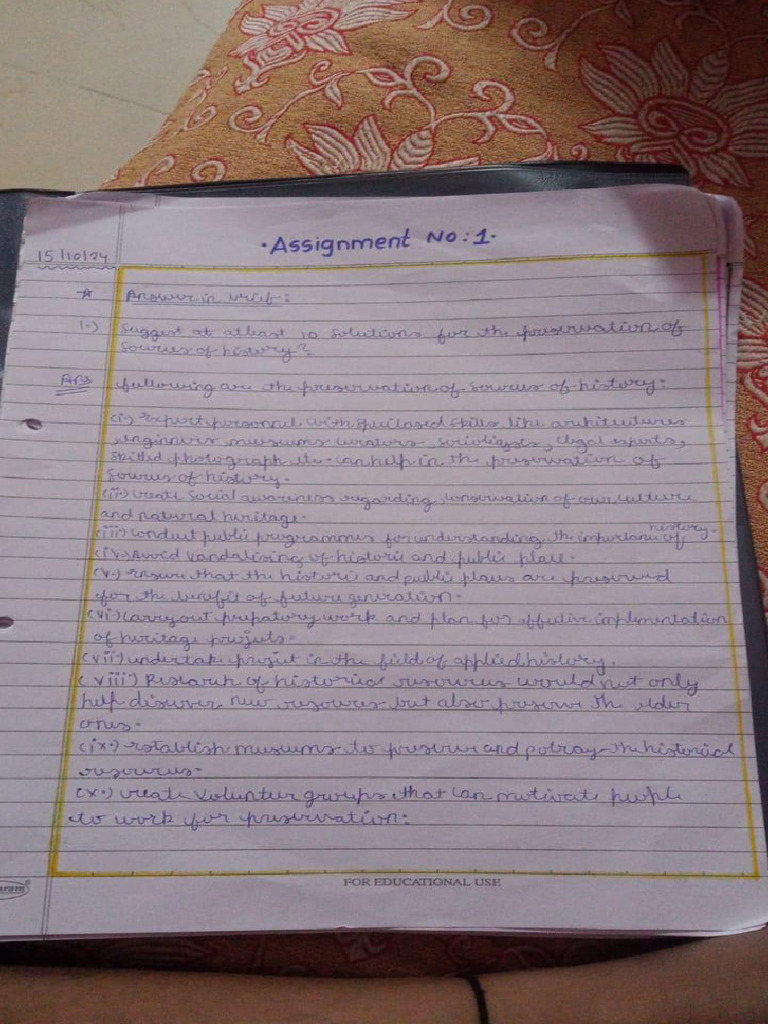 ·Assignment No:1·
15/10/24
* Answer in brief:
1.) Suggest at atleast 10 solutions for the preservation of
sources of history?
Ans following are the preservation of sources of history:
(i) expert personnel with skills like architectures
, enginners museums curators sociologists, legal experts,
skilled photograph etc. can help in the preservation of
sources of history.
(ii) create social awareness regarding conservation of our culture
and natural heritage.
(iii) conduct public programmes for understanding the importance of history.
(iv) Avoid vandalising of historic and public place.
(v.) ensure that the historic and public places are preserved
for the benefit of future generation.
(vi) carryout prepatory work and plan for effective implementation
of heritage projects.
(vii) undertake project in the field of applied history.
(viii) Research of historical resources would not only
help discover new resources but also preserve the older
ones.
(ix.) establish museums to preserve and potray the historical
resources.
(x.) create volunteer groups that can motivate people
to work for preservation.
FOR EDUCATIONAL USE